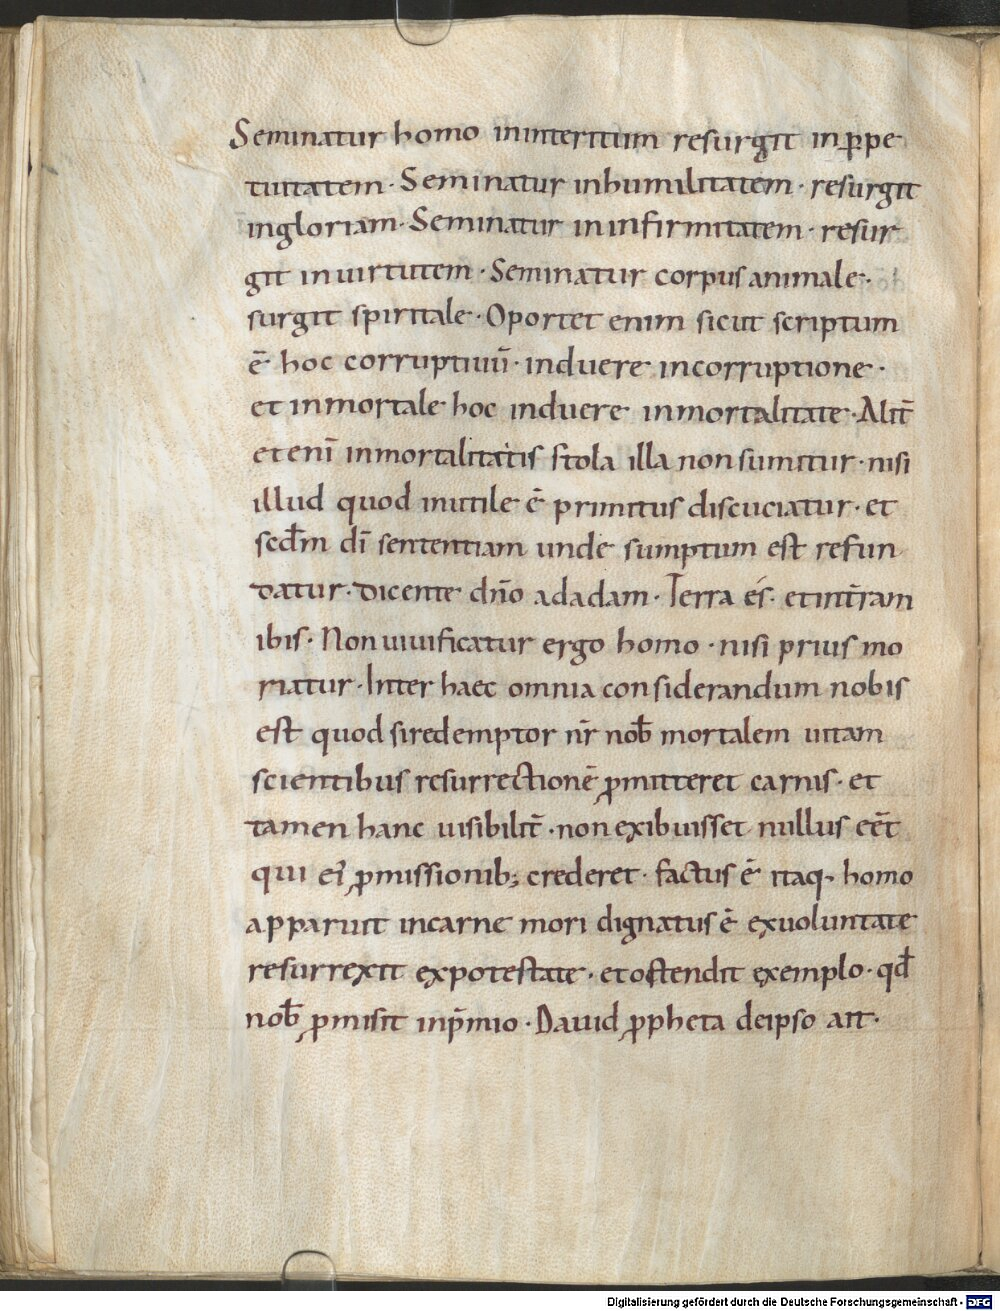 Seminatur homo ininteritum resurgit inp̱pe
tuitatem · Seminatur inhumilitatem · resurgit
ingloriam · Seminatur in infirmitatem · resur
git in uirtutem · Seminatur corpus animale ·
surgit spiritale · Oportet enim sicut scriptum
ē hoc corruptiuū · induere incorruptione ·
et inmortale hoc induere inmortalitate · Alit̄
et enī inmortalitatis stola illa non sumitur · nisi
illud quod inutile ē primitus discuciatur · et
scd̄m dī sententiam unde sumptum est refun
datur · dicente dn̄o ad adam · Terra es · et int̄ram
ibis · Non uiuificatur ergo homo · nisi prius mo
riatur · Inter haec omnia considerandum nobis
est quod si redemptor nr̄ nob̄ mortalem uitam
scientibus resurrectionē ꝓmitteret carnis · et
tamen hanc uisibilit̄ · non exibuisset nullus eēt
qui eī ꝓmissionib; crederet · factus ē itaq· homo
apparuit incarne mori dignatus ē exuoluntate
resurrexit expotestate · et ostendit exemplo · qd̄
nob̄ ꝓmisit inp̄mio · Dauid ꝓpheta deipso ait ·
Digitalisierung gefördert durch die Deutsche Forschungsgemeinschaft - DFG